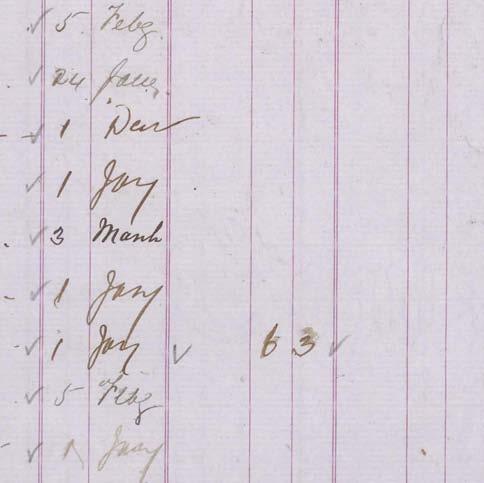 ✓ 5 Feby
✓ 24 June
✓ 1 Decr
✓ 1 Jany
✓ 3 March
✓ 1 Jany
✓ 1 Jany ✓ 6 3 ✓
✓ 5 Feby
✓ 1 Jany